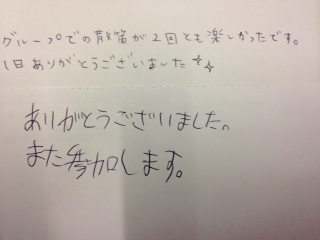 グループでの散策が2回とも楽しかったです。
1日ありがとうございました☆☆
ありがとうございました。
また参加します。